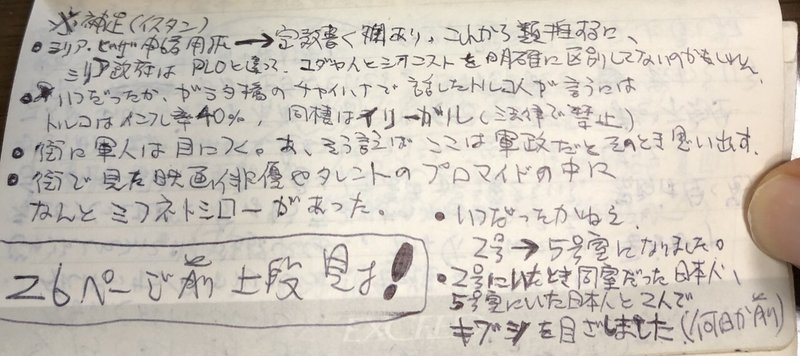 ※補足(イスタン)
• シリア・ビザ申請用紙→宗教書く欄あり、これから類推するに、
シリア政府はPLOと違って、ユダヤ人とシオニストを明確に区別してないのかもしれん。
• いつだったか、ガラタ橋のチャイハナで話したトルコ人が言うには
トルコはインフレ率40%、同棲はイリーガル(法律で禁止)
• 街に軍人は目につく。あ、そう言えばここは軍政だとそのとき思い出す。
• 街で見た映画俳優やタレントのブロマイドの中に
なんとミフネトシローがあった。
• いつだったかねえ
2号→5号室になりました。
• 2号にいたとき同室だった日本人、
5号室にいた日本人と2人で
キプシを目ざしました(何日か前)
26ページ前上段見よ!